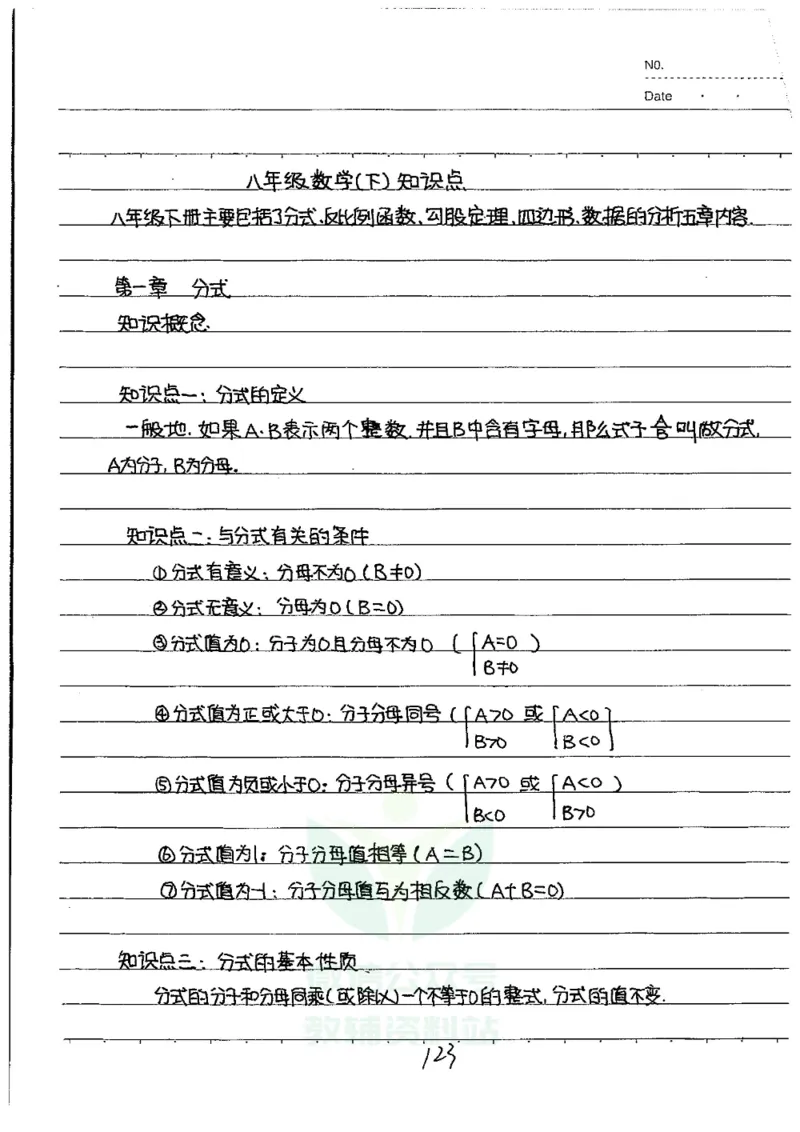 NO.
Date
八年级数学(下)知识点
八年级下册主要包括了分式、反比例函数、勾股定理、四边形、数据的分析五章内容.
第一章 分式
知识概念.
知识点一: 分式的定义
一般地.如果A、B表示两个整数.并且B中含有字母,那么式子 叫做分式,
A为分子,B为分母.
知识点二:与分式有关的条件
①分式有意义:分母不为0(B≠0)
②分式无意义: 分母为0(B=0)
③分式值为0:分子为0且分母不为0 ({A=0)
B≠0
④分式值为正或大于0:分子分母同号({A>0 或 {A<0]
B>0 B<0
⑤分式值为负或小于0:分子分母异号({A>0 或 {A<0)
B<0 B>0
⑥分式值为1:分子分母值相等(A=B)
⑦分式值为-1:分子分母值互为相反数(A+B=0)
知识点三:分式的基本性质
微信公众号
分式的分子和分母同乘(或除以)一个不等于0的整式,分式的值不变.
教辅资料站
123